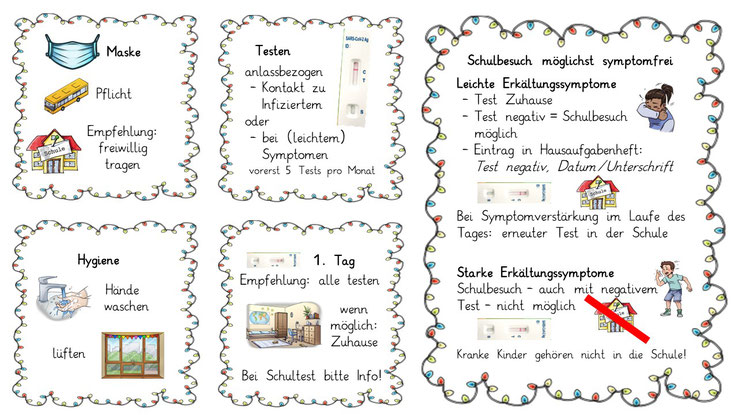 Maske
Pflicht
Schule
Empfehlung:
freiwillig
tragen
Testen
anlassbezogen
- Kontakt zu
Infiziertem
oder
- bei (leichtem)
Symptomen
vorerst 5 Tests pro Monat
SARS-CoV-2 Ag
C
T
Schulbesuch möglichst symptomfrei
Leichte Erkältungssymptome
- Test Zuhause
- Test negativ = Schulbesuch
möglich
- Eintrag in Hausaufgabenheft:
Test negativ, Datum/Unterschrift
Schule
Bei Symptomverstärkung im Laufe des
Tages: erneuter Test in der Schule
Starke Erkältungssymptome
Schulbesuch - auch mit negativem
Test - nicht möglich
Kranke Kinder gehören nicht in die Schule!
Hygiene
Hände
waschen
lüften
1. Tag
Empfehlung: alle testen
wenn
möglich:
Zuhause
Bei Schultest bitte Info!